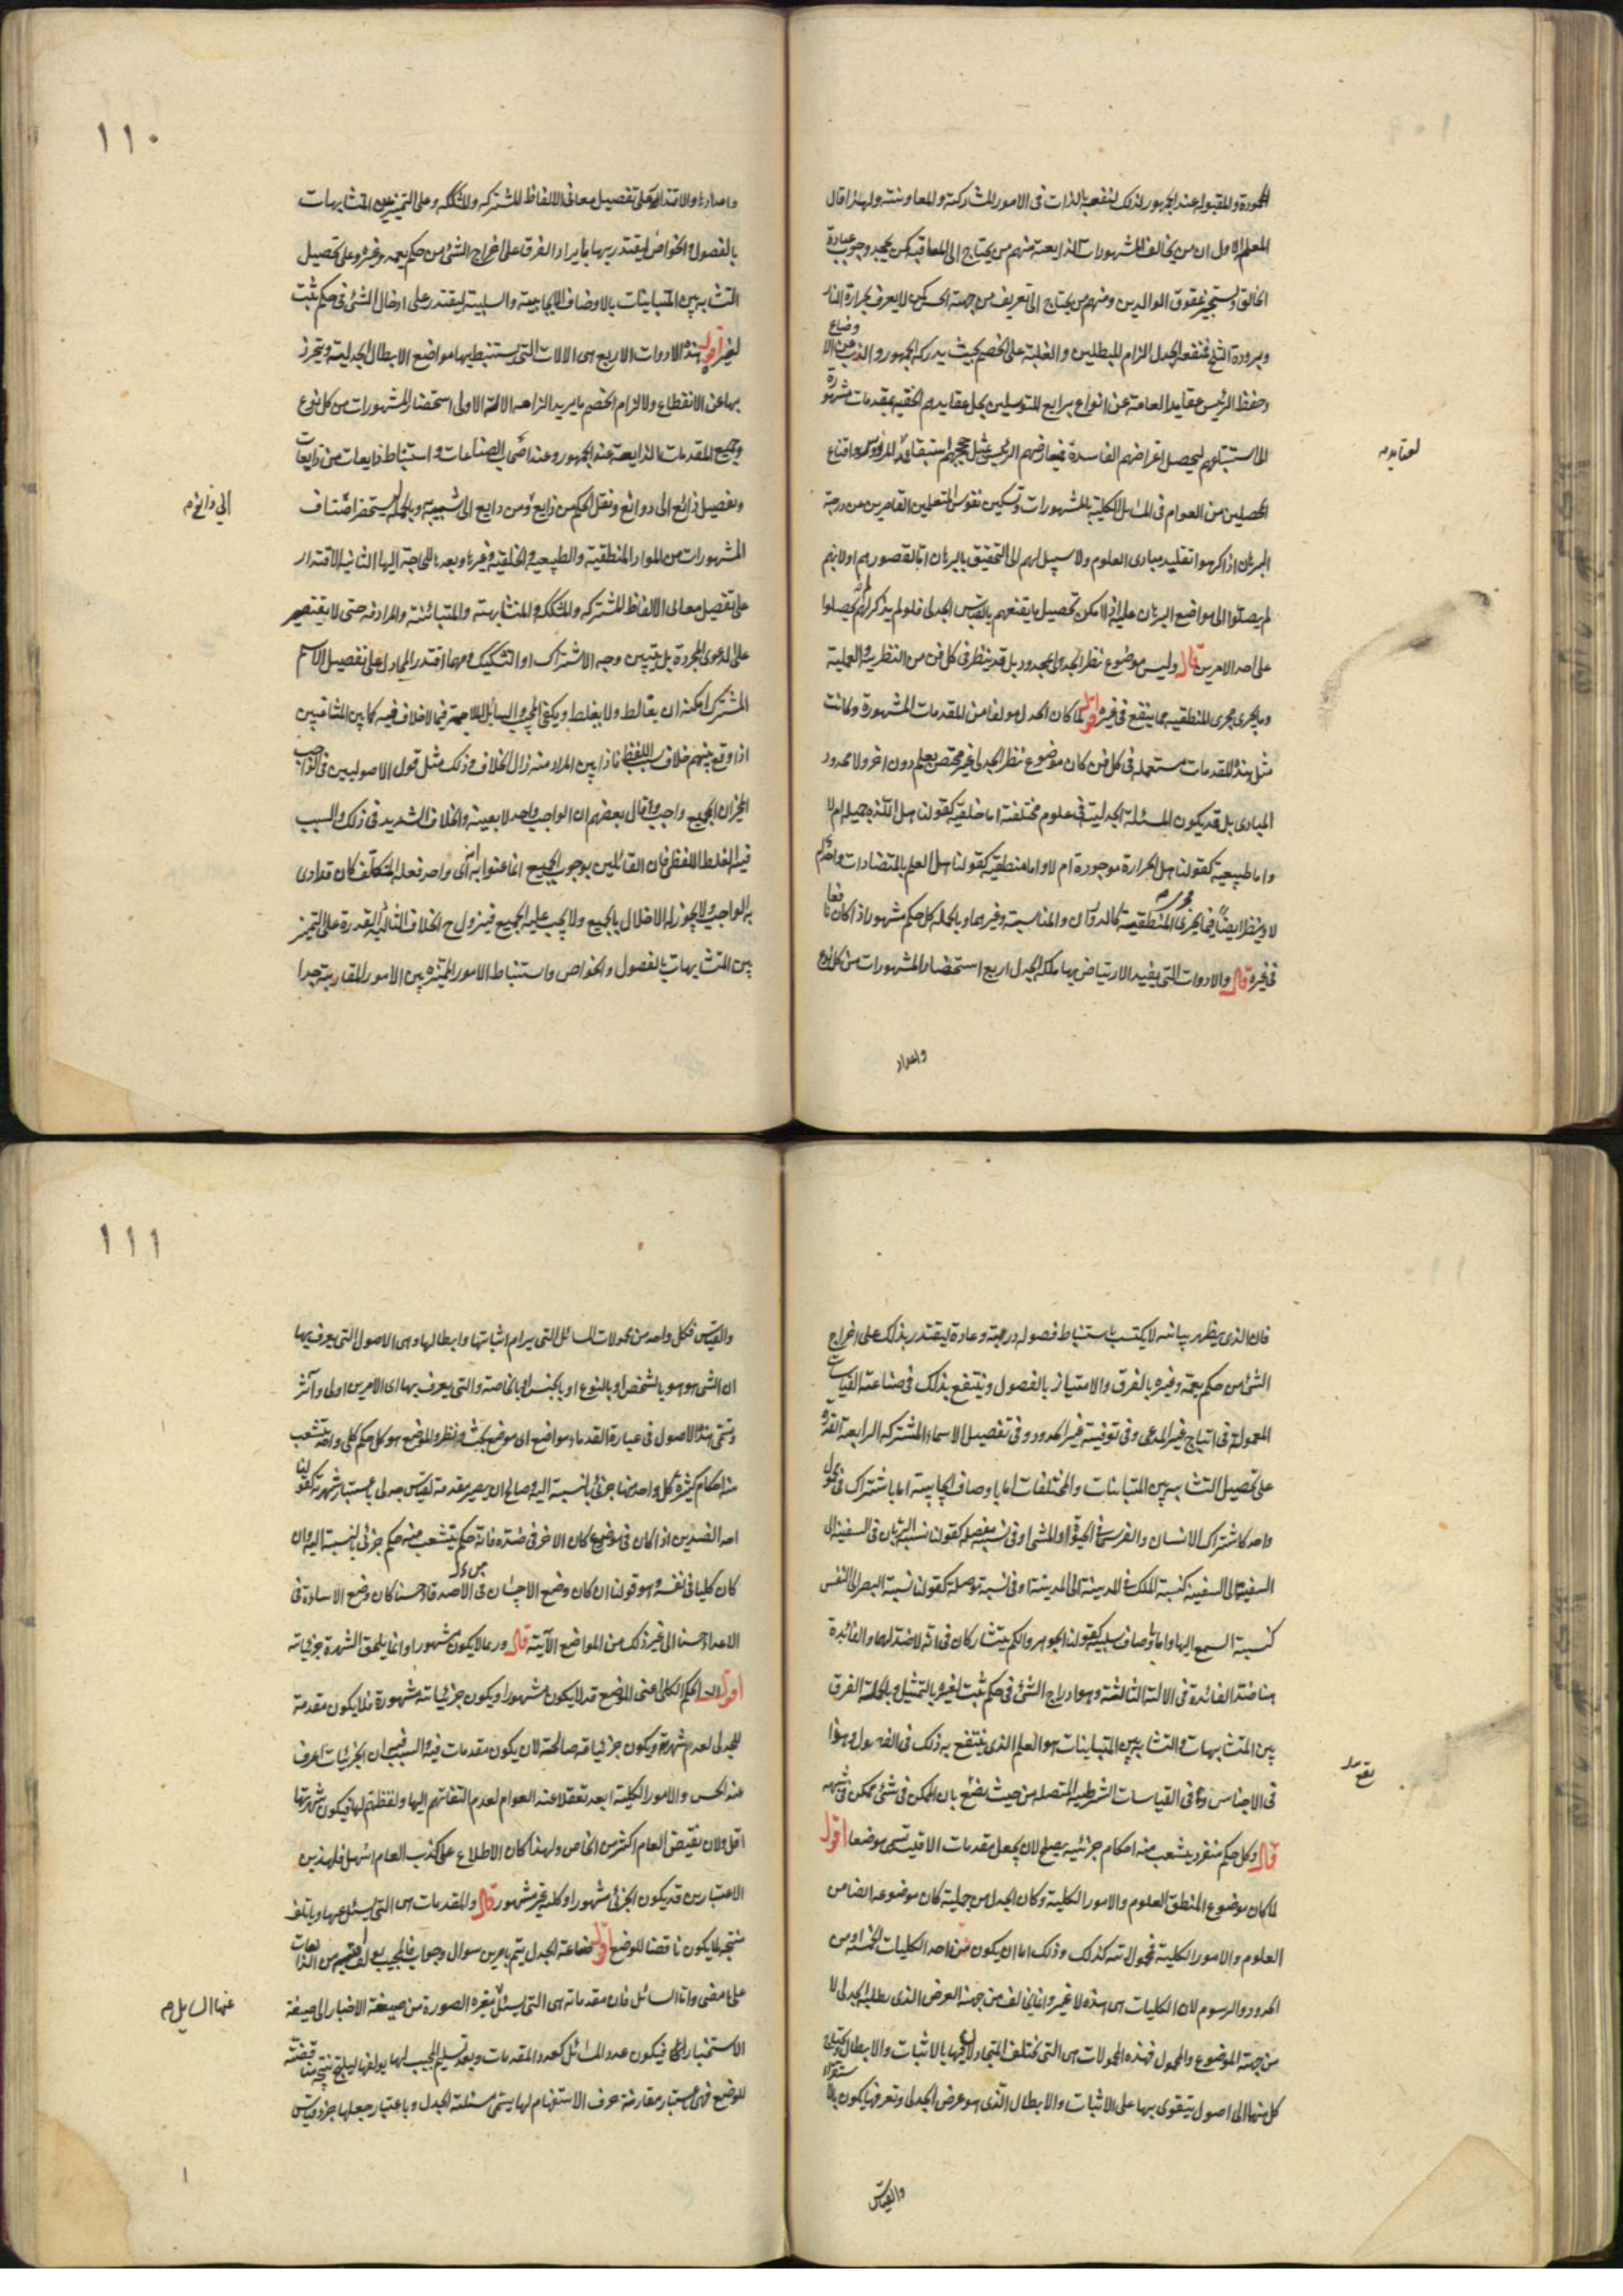 المحمودة والمقبولة عند الجمهور لذلك لنفعها بالذات فى الامور المشاركة والمعاونة ولهذا قال
المعلم الاول ان من يخالف المشهورات الذايعة منهم من يحتاج الى المعاقبة كمن يجحد وجوب عبادة
الخالق ويستجيز عقوق الوالدين ومنهم من يحتاج الى تعريف من جهة الحس كمن لا يعرف بحرارة النار
وبرودة الثلج فمنفعة الجدل الزام المبطلين والغلبة على الخصم بحيث يدركه الجمهور والذب عن الاوضاع
وحفظ الرئيس عقايد العامة عن انواع المتوسلين بحل عقايدهم الحقية بمقدمات مشهورة
لعقايدهم
المحصلين من العوام فى المسائل الكلية بالمشهورات وتسكين نفوس المتعلمين القاصرين عن درجة
البرهان اذا كرهوا تقليد مبادى العلوم ولا سبيل لهم الى التحقيق بالبرهان اما لقصورهم او لانهم
لم يصلوا الى مواضع البرهان عليه اذ لا يمكن تحصيل ما يقنعهم بالقياس الجدلى فلو لم يذكر لهم لم يحصلوا
على احد الامرين قال وليس موضوع نظر الجدلى بمحدود بل قد ينظر فى كل فن من النظرية والعملية
وما يجرى مجرى المنطقية مما ينفع فى غيره اقول لما كان الجدل مولفا من المقدمات المشهورة وكانت
مثل هذه المقدمات مستعملة فى كل فن كان موضوع نظر الجدلى غير مختص بعلم دون اخر ولا محدود
المبادى بل قد يكون المسئلة الجدلية فى علوم مختلفة اما خلقية كقولنا هل اللذة جميلة ام لا
واما طبيعية كقولنا هل الحرارة موجودة ام لا واما منطقية كقولنا هل العلم بالمتضادات واحد ام
لا وينظر ايضا فيما يجرى مجرى المنطقية والمناسبة وغيرهما وبالجملة كل حكم مشهور اذا كان نافعا
فى غيره قال والادوات التى يفيد الارتياض بها ملكة الجدل اربع استحضار المشهورات من كل نوع
واعداد
١١٠
واعدادها والاقتدار على تفصيل معانى الالفاظ المشتركة والمشككة وعلى التمييز بين المتشابهات
بالفصول والخواص ليقتدر بها بايراد الفرق على اخراج الشئ من حكم يعمه وغيره وعلى تحصيل
التشابه بين المتباينات بالاوصاف الايجابية والسلبية ليقتدر على ادخال الشئ فى حكم ثبت
لغيره اقول هذه الادوات الاربع هى الالات التى يستنبط بها مواضع الابطال الجدلية ويتحرز
بها عن الانقطاع ولالزام الخصم ما يريد الزامه الالة الاولى استحضار المشهورات من كل نوع
وجميع المقدمات الذايعة عند الجمهور وعند اصحاب الصناعات واستنباط ذايعات من ذايعات
وتفصيل ذائع الى ذوائع ونقل الحكم من ذايع ومن ذايع الى شبيهه وبالجملة يستحضر اصناف
الى ذائع م
المشهورات من المواد المنطقية والطبيعية والخلقية وغيرها الثانية الاقتدار
على تفصيل معانى الالفاظ المشتركة والمشككة والمتشابهة والمتباينة والمرادفة حتى لا يقتصر
على الدعوى المجردة بل يتبين وجه الاشتراك او التشكيك فمهما اقتدر المجادل على تفصيل الاسم
المشترك امكنه ان يغالط ولا يغلط ويكفى المجيب والسائل فيما لا خلاف فيه كما بين المتناقضين
اذا وقع بينهم خلاف بسبب اللفظ فاذا بين المراد منه زال الخلاف وذلك مثل قول الاصوليين فى الواجب
المخير ان الجميع واجب وقال بعضهم ان الواجب واحد لا بعينه والخلاف الشديد فى ذلك والسبب
فيه الغلط اللفظى فان القائلين بوجوب الجميع انما عنوا به ان اى واحد فعله المكلف كان قد ادى
به الواجب ولا يجوز له الاخلال بالجميع ولا يجب عليه الجميع فيزول ح الخلاف الثالثة القدرة على التمييز
بين المتشابهات بالفصول والخواص واستنباط الامور المميزة بين الامور المتقاربة جدا
فان الذى يظهر بيانه لا يكتسب باستنباط فصوله دربة وعادة ليقتدر بذلك على اخراج
الشئ من حكم يعمه وغيره بالفرق والامتياز بالفصول وينتفع بذلك فى صناعة القياسات
المعمولة فى انتاج غير المدعى وفى توفية غير الحدود وفى تفصيل الاسماء المشتركة الرابعة القدرة
على تحصيل التشابه بين المتباينات والمختلفات اما باوصاف ايجابية اما باشتراك فى محمول
واحد كاشتراك الانسان والفرس فى الحيوة او المشى او فى نسبة منفصلة كقولنا نسبة الربان فى السفينة الى
السفينة الى السفينة كنسبة الملك فى المدينة الى المدينة او فى نسبة متصلة كقولنا نسبة البصر الى النفس
كنسبة السمع اليها واما باوصاف سلبية كقولنا الجوهر والكم يتشاركان فى انه لا ضد لهما والفائدة
هنا ضد الفائدة فى الالة الثالثة وهو ادراج الشئ فى حكم ثبت لغيره بالتمثيل وبالجملة الفرق
بين المتشابهات والتشابه بين المتباينات هو العلم الذى ينتفع به ذلك فى الفصول وهذا
يقع
فى الاجناس وفى القياسات الشرطية المتصلة من حيث يضع بان الممكن فى شئ ممكن فى شبهه
قال وكل حكم منفرد يتشعب منه احكام جزئية يصلح لان يجعل مقدمات الاقيسة تسمى موضعا اقول
لما كان موضوع المنطق العلوم والامور الكلية وكان الجدل من جملته كان موضوعه ايضا من
العلوم والامور الكلية فمحمولاته كذلك وذلك اما ان يكون من احد الكليات الخمسة او من
الحدود والرسوم لان الكليات هى هذه لا غير وانما يخالف من جهة الغرض الذى يطلبه الجدلى لا
من جهة الموضوع والمحمول فهذه المحمولات هى التى يختلف المتجادلان فيها بالاثبات والابطال ويحتاج
كل منهما الى اصول يتقوى بها على الاثبات والابطال الذى هو غرض الجدلى وتعرفها يكون بالاستقراء
والقياس
١١١
والقياس فكل واحد من محمولات المسائل التى يرام اثباتها وابطالها وهى الاصول التى يعرف بها
ان الشئ هو هو بالشخص او بالنوع او بالجنس او بالخاصة والتى يعرف بها اى الامرين اولى وآثر
وتسمى هذه الاصول فى عبارة القدماء مواضع اى موضع بحث ونظر والموضع هو كل حكم كلى واحد يتشعب
منه احكام كثيرة كل واحد منها جزئى بالنسبة اليه وصالح لان يصير مقدمة لقياس جدلى باعتبار شهرته كقولنا
احد الضدين اذا كان فى موضوع كان الاخر فى ضده فانه حكم يتشعب منه حكم جزئى بالنسبة اليه وان
كان كليا فى نفسه وهو قولنا ان كان وضع الاحسان فى الاصدقاء حسنا كان وضع الاساءة فى
الاعداء حسنا الى غير ذلك من المواضع الآتية قال وربما لا يكون مشهورا وانما يلحق الشهرة جزئياته
اقول الحكم الكلى اعنى الموضع قد لا يكون مشهورا ويكون جزئياته مشهورة فلا يكون مقدمة
للجدلى لعدم شهرته ويكون جزئياته صالحة لان يكون مقدمات فيه والسبب فيه ان الجزئيات اعرف
عند الحس والامور الكلية ابعد تعقلا عند العوام لعدم التفاتهم اليها ولفظتهم لها فيكون شهرتها
اقل ولان نقيض العام اكثر من الخاص ولهذا كان الاطلاع على كذب العام اسهل فلهذين
الاعتبارين قد يكون الجزئى مشهورا وكليه غير مشهور قال والمقدمات هى التى يسئل عنها ويتالف
منتجة لما يكون ناقضا للوضع اقول صناعة الجدل يتم بامرين سوال وجواب فالمجيب يولف من الذايعات
على ما مضى واما السائل فان مقدماته هى التى يسئل بتغيره الصورة من صيغة الاخبار الى صيغة
عنها السايل م
الاستخبار فيكون عدد المسائل كعدد المقدمات وبعد تسليم المجيب لها يولفها لينتج نتيجة مناقضة
للوضع فهى باعتبار مقارنة حرف الاستفهام لها يسمى مسئلة الجدل وباعتبار جعلها جزء قياس